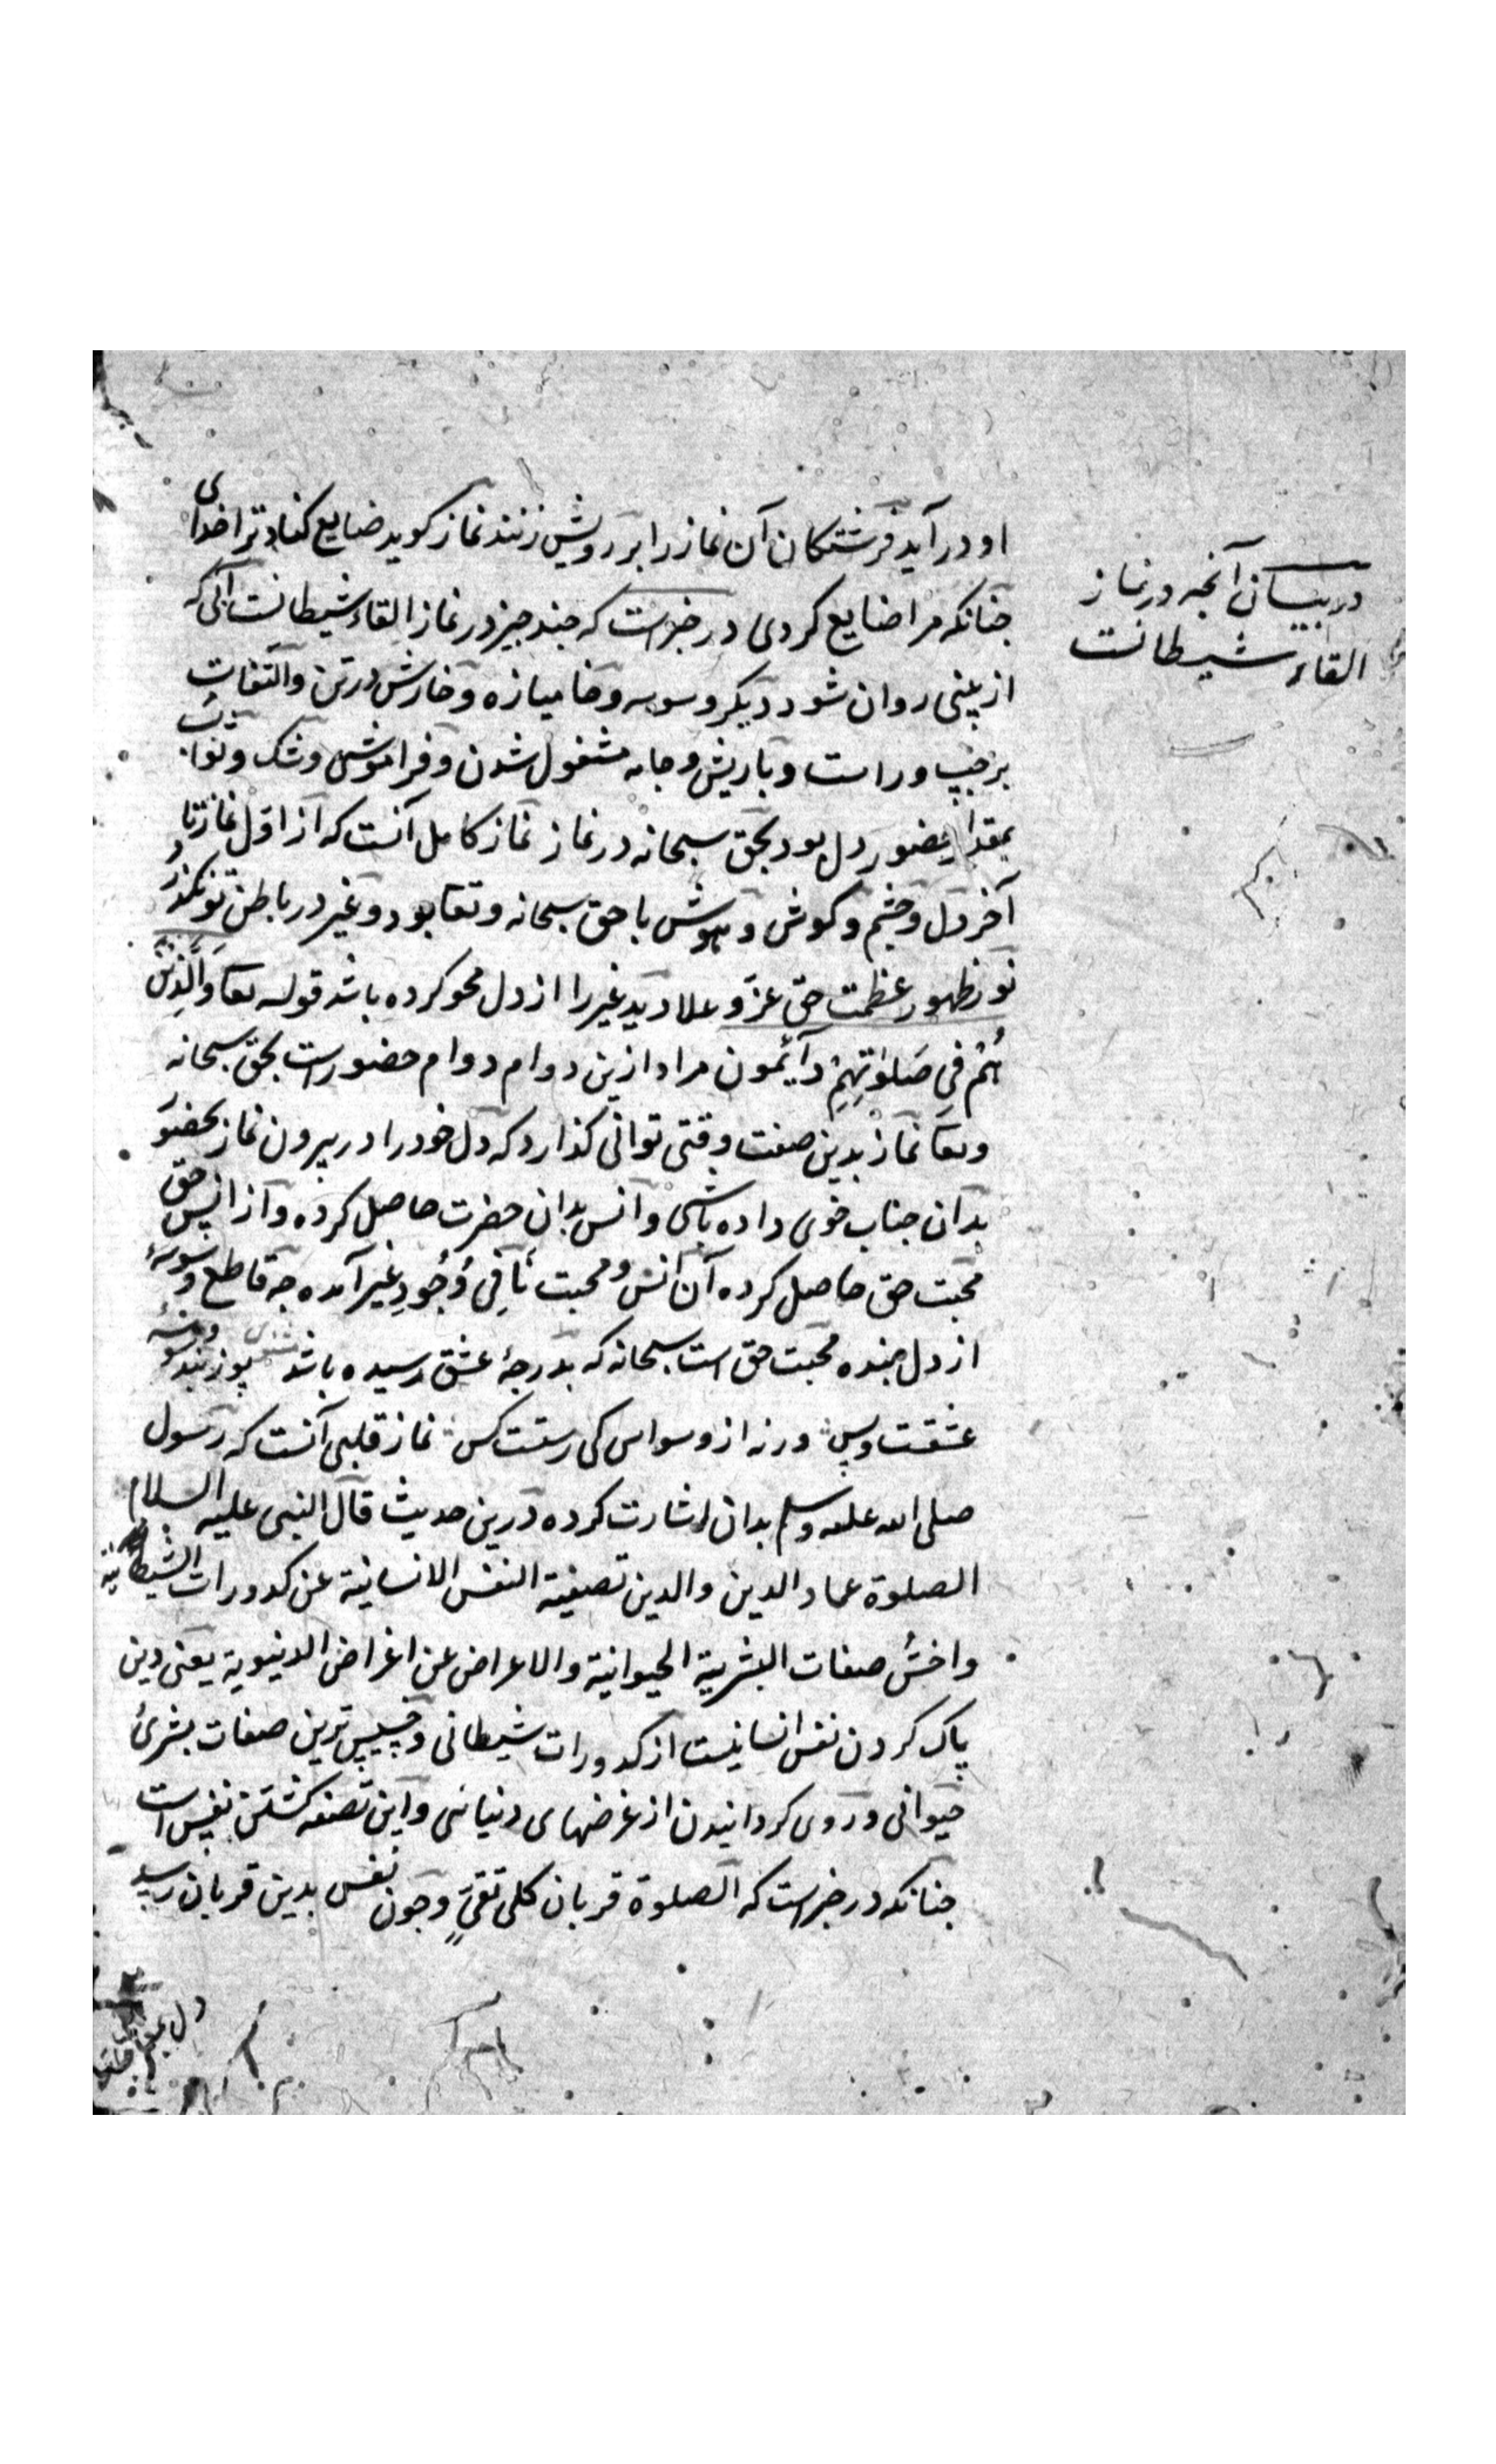 در بیان آنجه در نماز
القاء شیطانست
او در آید فرشتکان آن نماز را بر رویش زنند نماز کوید ضایع کناد ترا خدای
جنانکه مرا ضایع کردی در خبرست که جند جیز در نماز القاء شیطانست آنکه
از بینی روان شود دیکر وسوسه و خامیازه و خارش در تن و التفات
بر جپ و راست و با ریش و جامه مشغول شدن و فراموشی و شک و ثواب
بمقدار حضور دل بود بحق سبحانه در نماز نماز کامل آنست که از اول نماز تا
آخر دل و جشم و کوش و هوش با حق سبحانه و تعا بود و غیر در باطن تو نکذرد
نور ظهور عظمت حق عز و علا دید غیر را از دل محو کرده باشد قوله تعا وَالَّذِینَ
هُمْ فی صَلَوٰتِهِمْ دآئمون مراد ازین دوام دوام حضورست بحق سبحانه
و تعا نماز بدین صفت وقتی توانی کذارد که دل خود را در بیرون نماز بحضور
بدان جناب خوی داده باشی و انس بدان حضرت حاصل کرده و از انس حق
محبت حق حاصل کرده آن انس و محبت نافیِ وُجُودِ غیر آمده جه قاطع وسوسهٔ
از دل بنده محبت حق است سبحانه که بدرجهٔ عشق رسیده باشد پوزبند وسوسهٔ
عشقست و بس ورنه از وسواس کی رستست کس نماز قلبی آنست که رسول
صلی الله علیه وسلم بدان اشارت کرده درین حدیث قال النبی علیه السلام
الصلوة عماد الدین والدین تصفیة النفس الانسانیة عن کدورات الشیطانیة
واخسُّ صفات البشریة الحیوانیة والاعراض عن اغراض الدنیویة یعنی دین
پاک کردن نفس انسانیست از کدورات شیطانی و خسیس ترین صفات بشریٔ
حیوانی و روی کردانیدن از غرضهای دنیائی و این تصفیه کشتن نفس است
جنانکه در خبرست که الصلوة قربان کلی تقیٍّ و جون نفس بدین قربان رسید